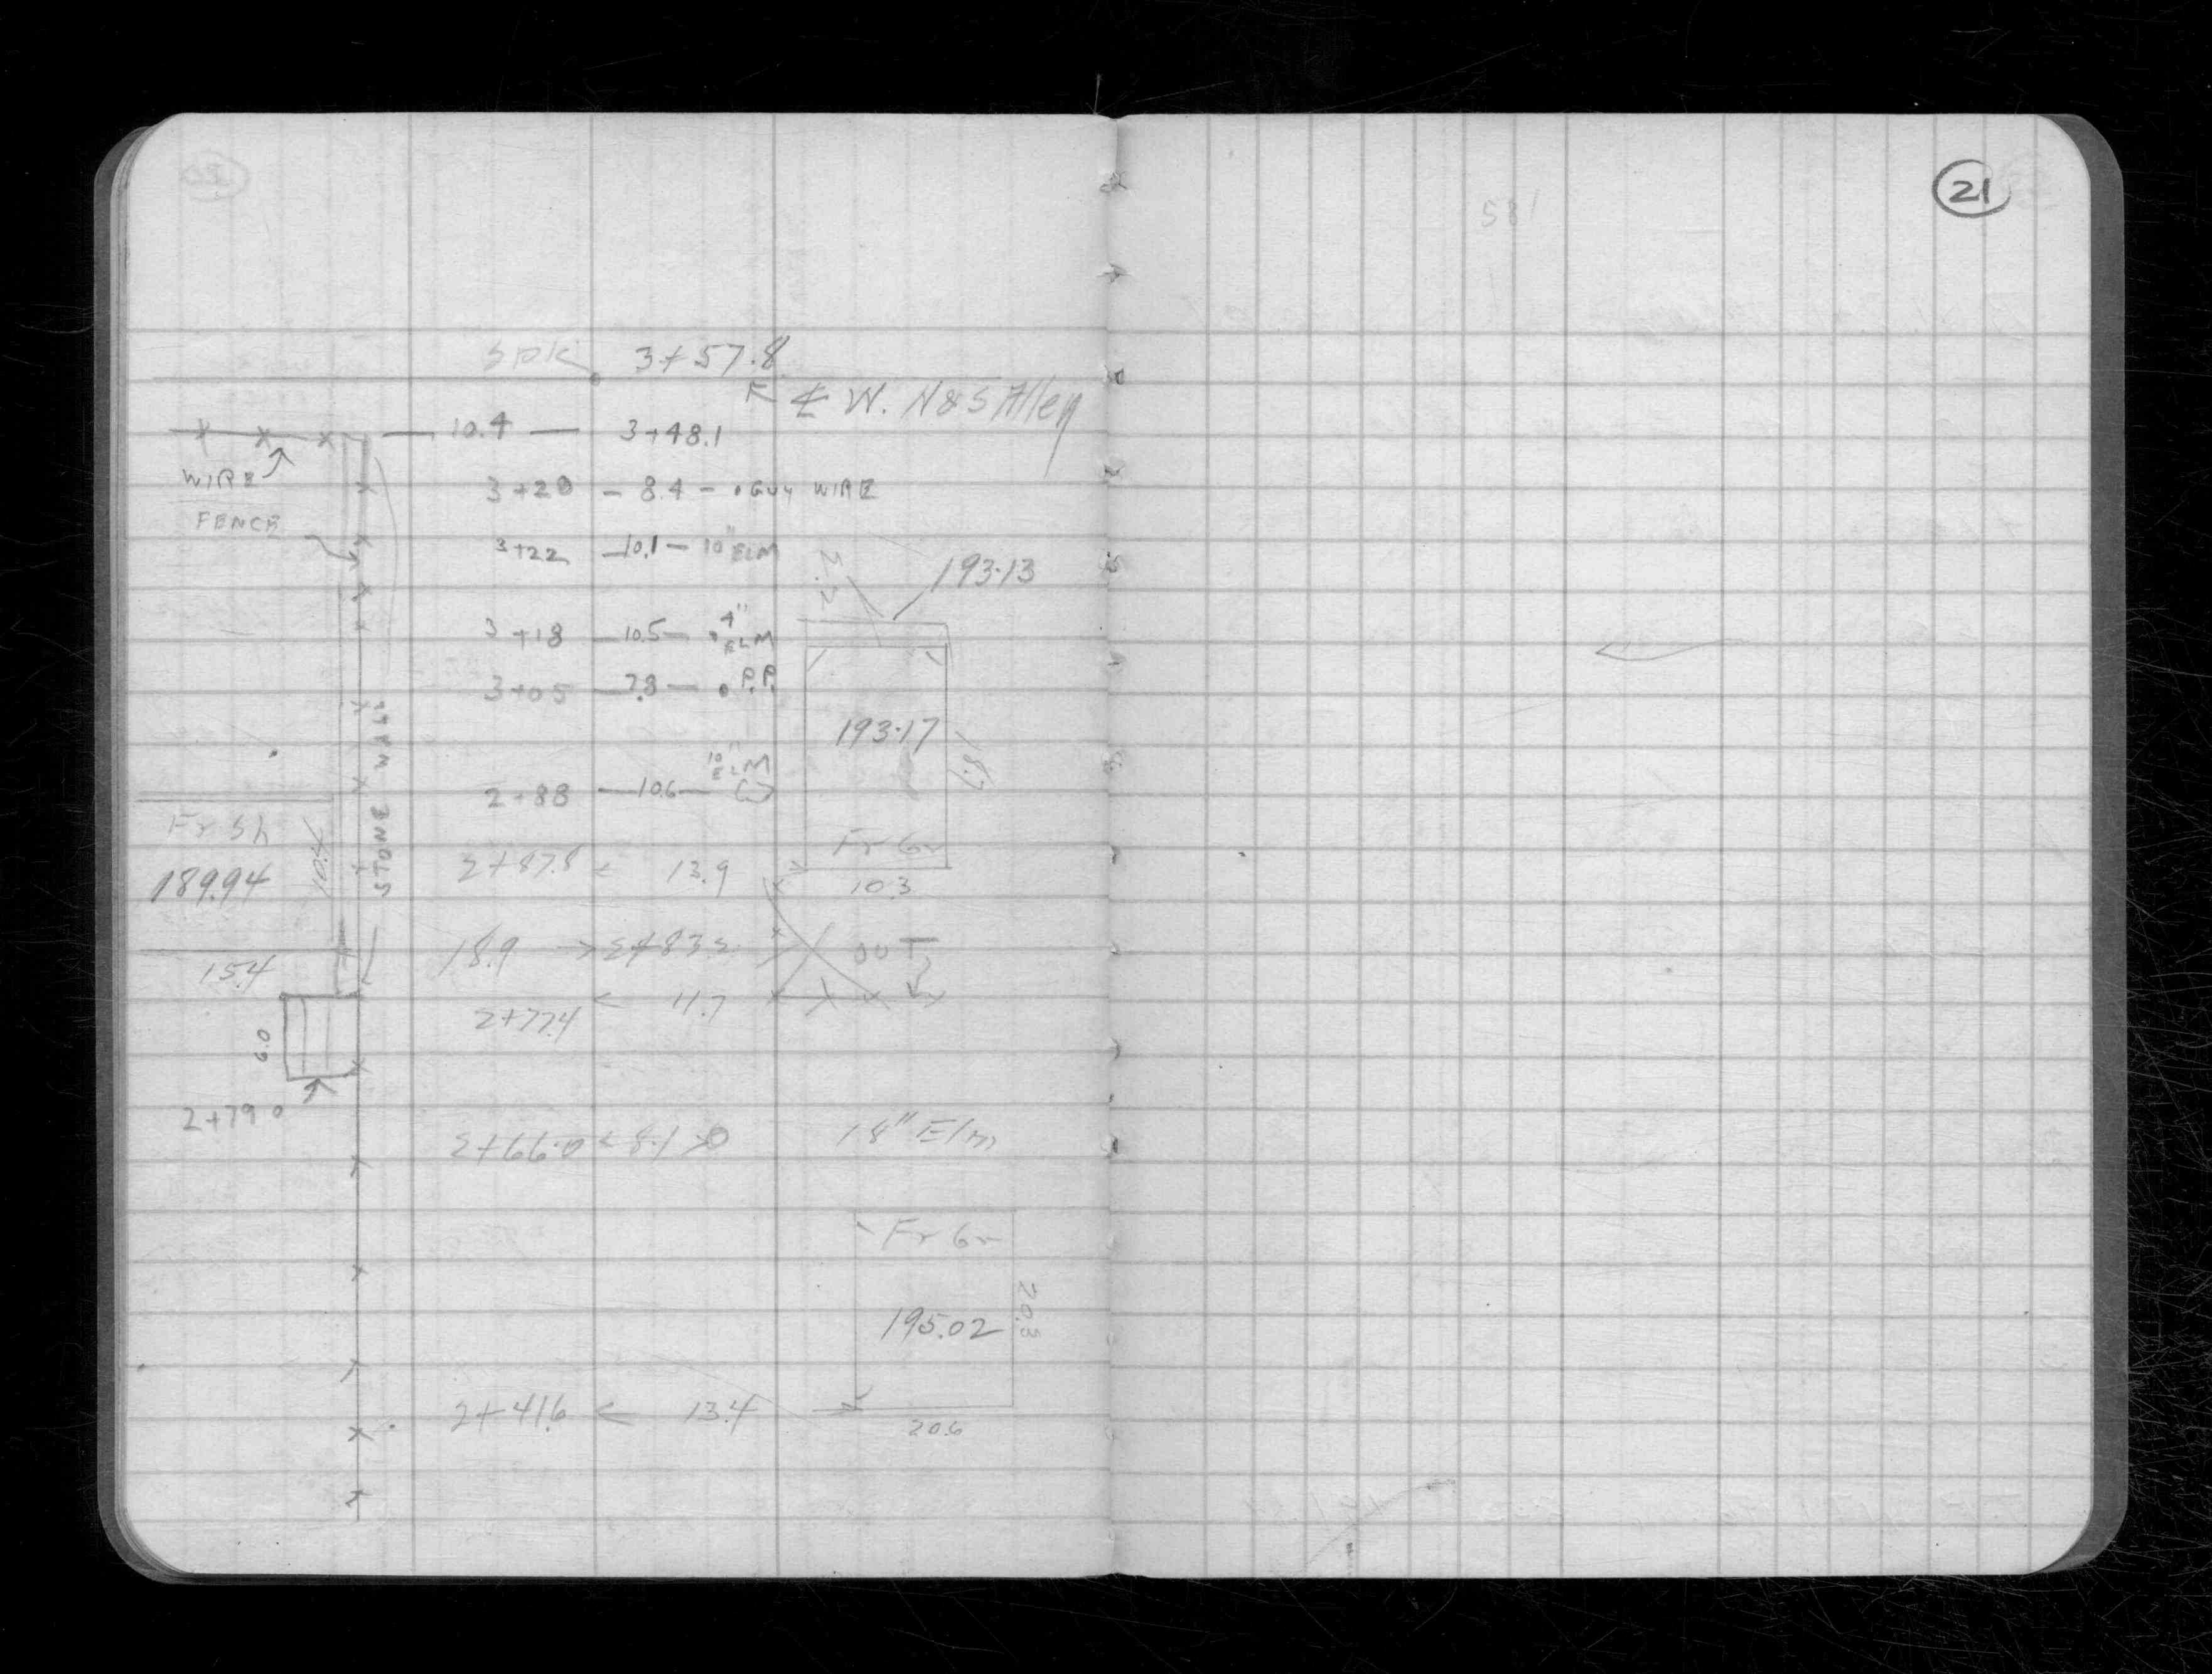 21
spk 3+57.8
℄ W. N&S Alley
10.4 — 3+48.1
WIRE
FENCE
3+20 — 8.4 — GUY WIRE
3+22 — 10.1 — 10" ELM
193.13
3+18 — 10.5 — 4" ELM
3+05 — 7.8 — P.P.
193.17
18.7
STONE WALL
2+88 — 10.6 — 10" ELM
Fr Sh
189.94
10.4
15.4
Fr Gr
2+87.8 < 13.9
10.3
18.9 → 2+83.2
OUT
2+77.4 < 11.7
6.0
2+79.0
2+66.0 < 8.1 > 18" Elm
Fr Gr
195.02
20.3
2+41.6 < 13.4
20.6